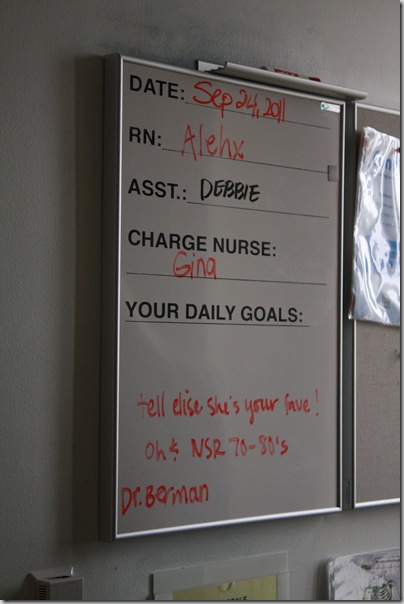 DATE: Sep 24, 2011
RN: Alehx
ASST.: DEBBIE
CHARGE NURSE:
Gina
YOUR DAILY GOALS:
tell elise she's your fave!
Oh & NSR 70-80's
Dr. Berman